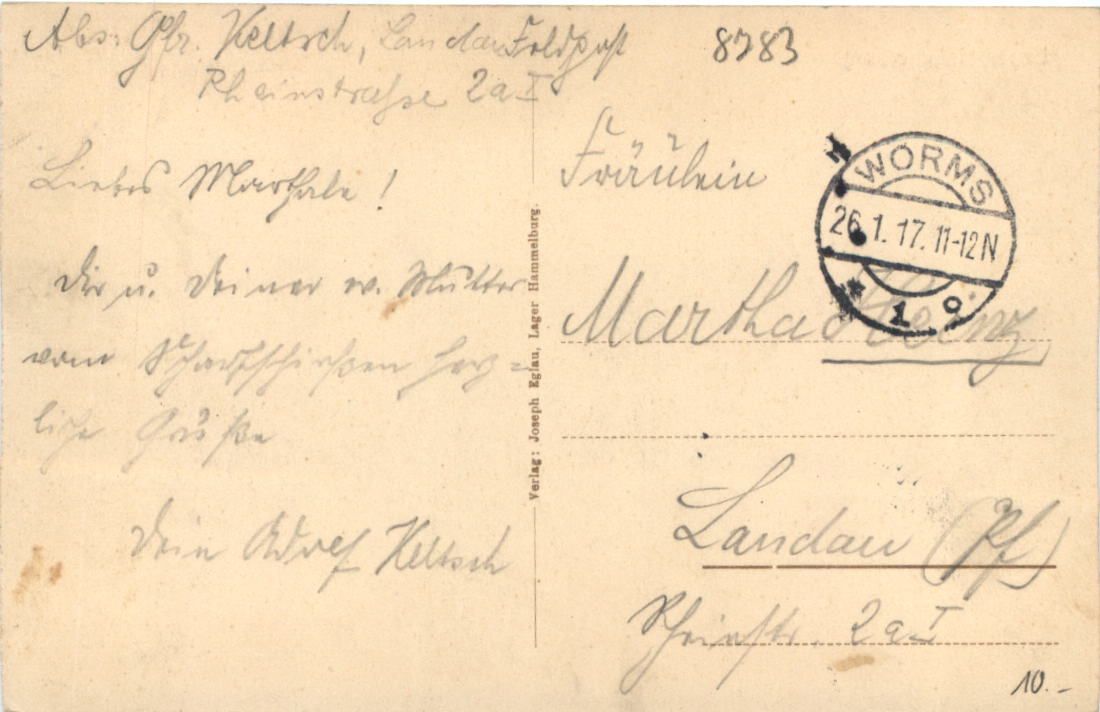 Abs: Gfr. Keltsch, Landau Feldpost
Rheinstrasse 2a I
Liebes Marthale!
Dir u. Deiner w. Mutter
vom Scharfschießen herz=
liche Grüße
Dein Adolf Keltsch
Verlag: Joseph Eglau, Lager Hammelburg.
8783
Fräulein
WORMS
26.1.17. 11-12N
* 1 o
Martha Heinz
Landau (Pf)
Rheinstr. 2a I
10.-